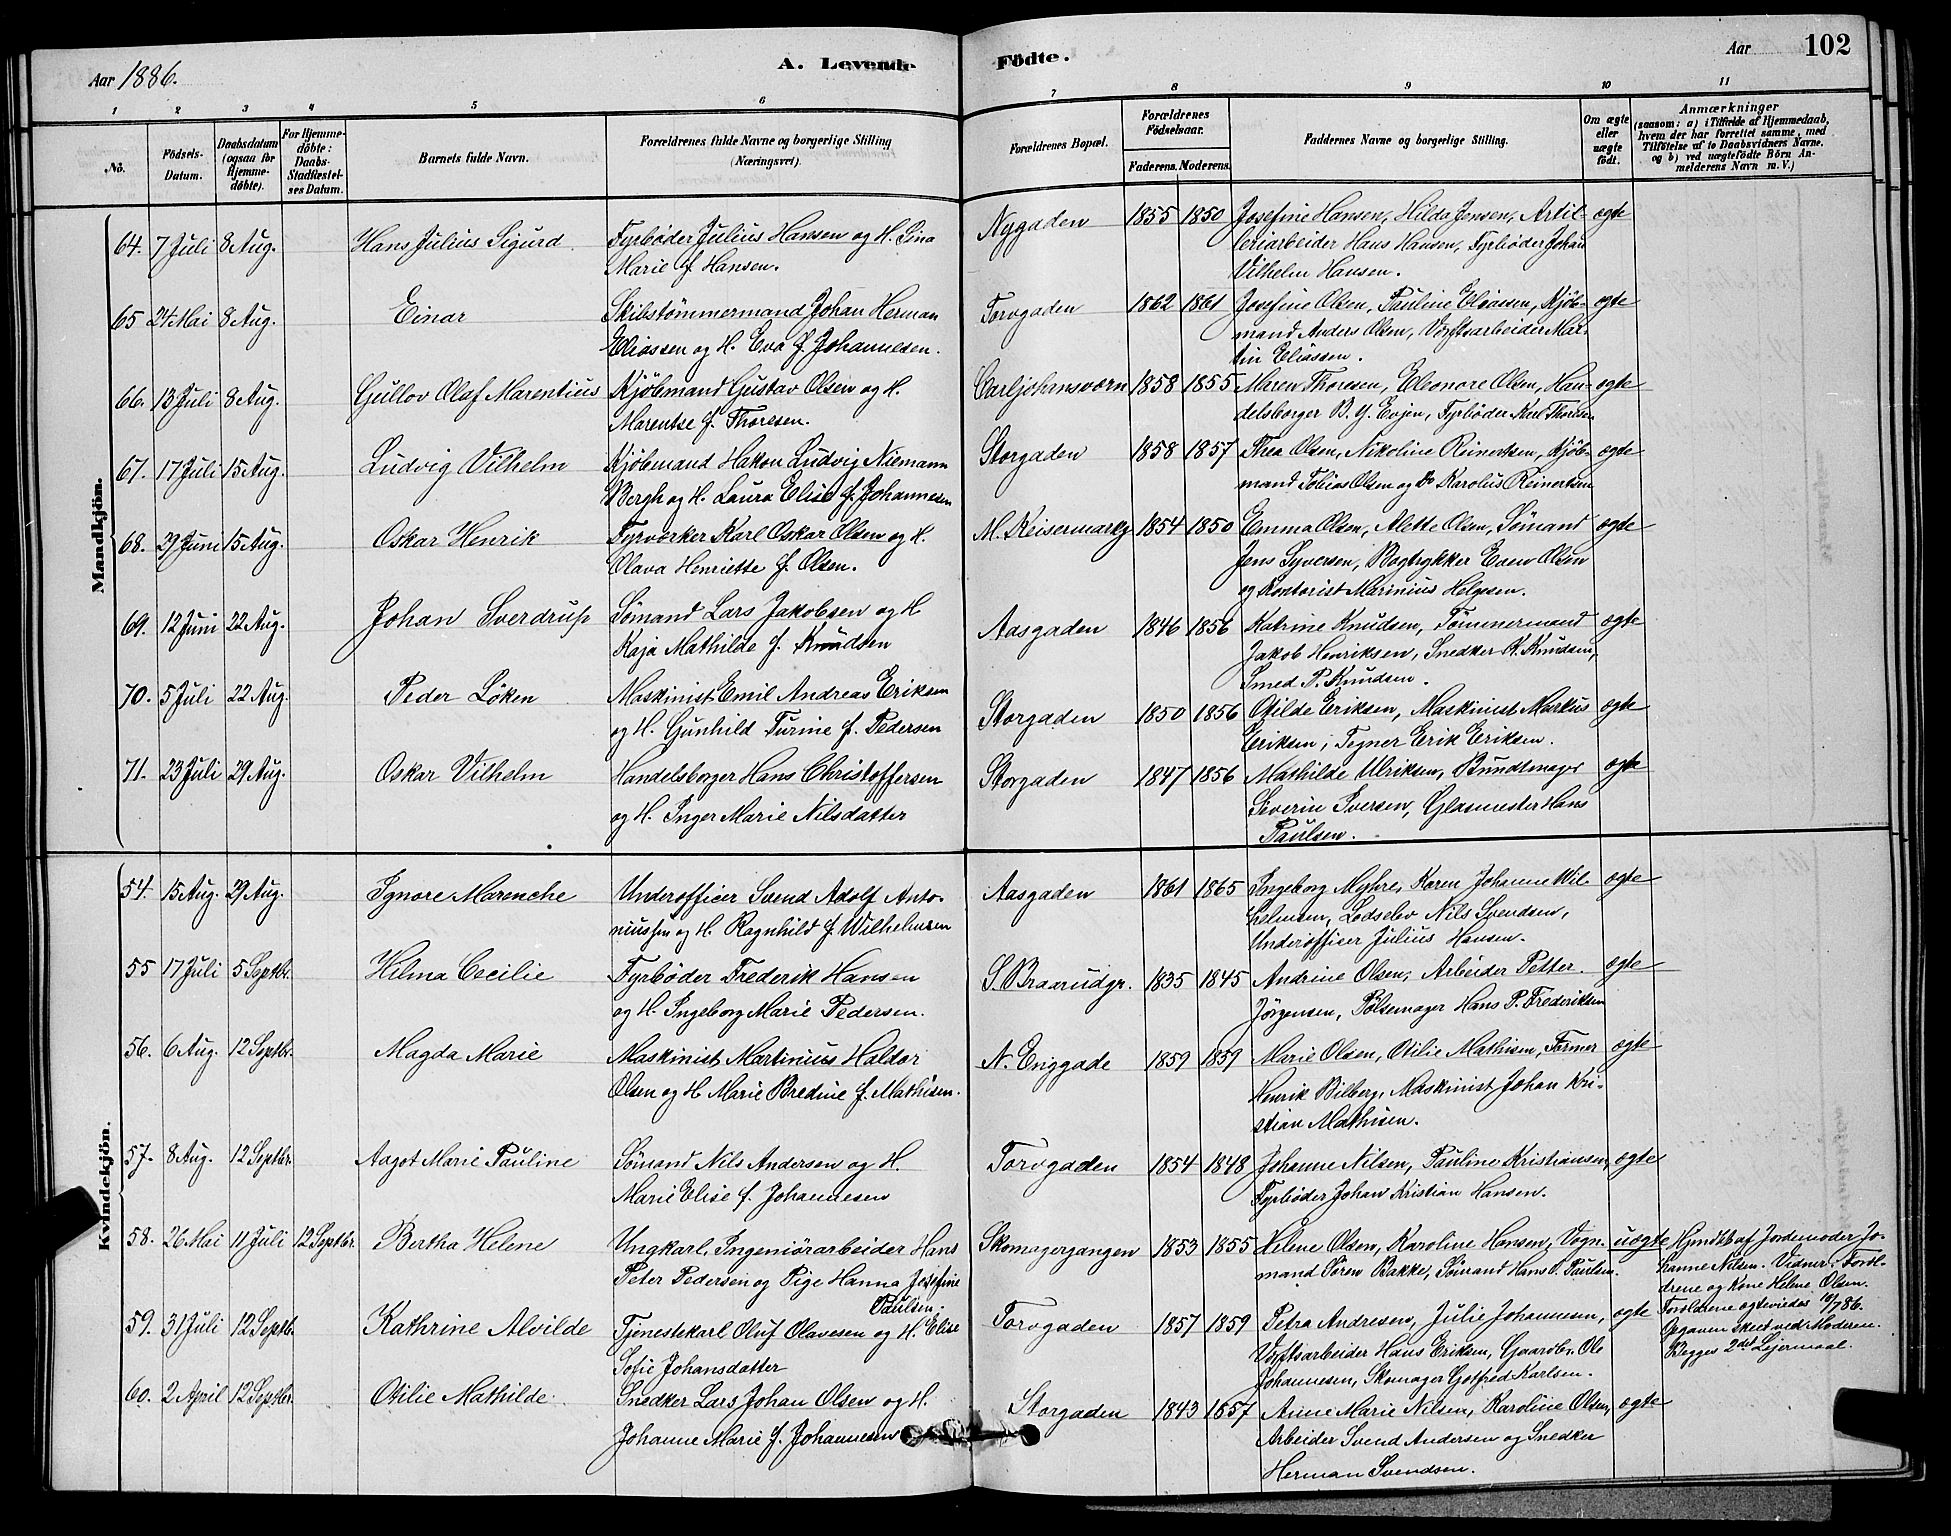 Aar 1886.
A. Levende
Födte.
Aar
102
1 2 3 4 5 6 7 8 9 10 11
No.
Födsels-Datum.
Daabsdatum (ogsaa for Hjemmedöbte).
For Hjemmedöbte: Daabs-Stadfæstelses Datum.
Barnets fulde Navn.
Forældrenes fulde Navne og borgerlige Stilling (Næringsvei).
Forældrenes Bopæl.
Forældrenes Födselsaar.
Faderens. Moderens.
Faddernes Navne og borgerlige Stilling.
Om ægte eller uægte födt.
Anmærkninger
(saasom: a) i Tilfælde af Hjemmedaab, hvem der har forrettet samme, med Tilföielse af to Daabsvidners Navne, og b) ved uægtefödte Börn Anmelderens Navn m. V.)
Mandkjön.
64. 7 Juli 8 Aug. Hans Julius Sigurd Fyrböder Julius Hansen og H. Sina Nygaden 1855 1850 Josefine Hansen, Hilda Jensen, Artil- ægte
Marie f. Hansen. leriarbeider Hans Hansen, Fyrböder Johan
Vilhelm Hansen.
65 24 Mai 8 Aug. Einar Skibstömmermand Johan Herman Torvgaden 1862 1861 Josefine Olsen, Pauline Eliassen, Kjöb- ægte
Eliassen og H. Eva f. Johannesen. mand Anders Olsen, Værftsarbeider Mar-
tin Eliassen.
66. 13 Juli 8 Aug. Gullov Olaf Marentius Kjöbmand Gustav Olsen og H. Carljohansværn 1858 1855 Maren Thoresen, Eleonore Olsen, Han- ægte
Marentse f. Thoresen. delsborger B. Y. Evjen, Fyrböder Karl Thoresen
67. 17 Juli 15 Aug. Ludvig Vilhelm Kjöbmand Hakon Ludvig Niemann Storgaden 1858 1857 Thea Olsen, Nikoline Reinertsen, Kjöb- ægte
Bergh og H. Laura Elise f. Johannesen mand Tobias Olsen og Do Karolius Reinertsen
68. 29 Juni 15 Aug. Oskar Henrik Fyrværker Karl Oskar Olsen og H. M. Keisermarkg 1854 1850 Emma Olsen, Alette Olsen, Sömand ægte
Olava Henriette f. Olsen. Jens Syversen, Bogtrykker Even Olsen
og Kontorist Marinius Helgesen.
69. 12 Juni 22 Aug. Johan Sverdrup Sömand Lars Jakobsen og H. Aasgaden 1846 1856 Katrine Knudsen, Tömmermand ægte
Kaja Mathilde f. Knudsen Jakob Henriksen, Snedker K. Knudsen,
Smed P. Knudsen.
70. 5 Juli 22 Aug. Peder Löken Maskinist Emil Andreas Eriksen Storgaden 1850 1856 Otilde Eriksen, Maskinist Markus ægte
og H. Gunhild Turine f. Pedersen Eriksen, Tegner Erik Eriksen.
71. 23 Juli 29 Aug. Oskar Vilhelm Handelsborger Hans Christoffersen Storgaden 1847 1856 Mathilde Ulriksen, Bundtmager ægte
og H. Inger Marie Nilsdatter Severin Iversen, Glasmester Hans
Paulsen.
Kvindekjön.
54. 15 Aug. 29 Aug. Ignore Marenche Underofficer Svend Adolf Anto- Aasgaden 1861 1865 Ingeborg Myhre, Karen Johanne Wil- ægte
niussen og H. Ragnhild f. Wilhelmsen helmsen, Lodselev Nils Svendsen,
Underofficer Julius Hansen.
55 17 Juli 5 Septbr. Hilma Cecilie Fyrböder Frederik Hansen S. Braarudgr. 1835 1845 Andrine Olsen, Arbeider Petter ægte
og H. Ingeborg Marie Pedersen. Jörgensen, Pölsemager Hans P. Frederiksen
56. 6 Aug. 12 Septbr. Magda Marie Maskinist Martinius Haldor N. Enggade 1859 1859 Marie Olsen, Otilie Mathisen, Former ægte
Olsen og H. Marie Bredine f. Mathisen. Henrik Bilberg, Maskinist Johan Kri-
stian Mathisen.
57. 8 Aug. 12 Septbr. Aagot Marie Pauline Sömand Nils Andersen og H. Torvgaden 1854 1848 Johanne Nilsen, Pauline Kristiansen, ægte
Marie Elise f. Johannesen Fyrböder Johan Kristian Hansen.
58. 26 Mai 11 Juli 12 Septbr. Bertha Helene Ungkarl, Ingeniörarbeider Hans Skomagergangen 1853 1855 Helene Olsen, Karoline Hansen, Vogn- uægte Hjmdbt af Jordemoder Jo-
Peter Pedersen og Pige Hanna Josefine Paulsen. mand Sören Bakke, Sömand Hans P. Paulsen. hanne Nilsen. Vidner: Foræl-
drene og Kone Helene Olsen.
Forældrene ægteviedes 10/7 86.
Opgaven skeet ved Moderen.
Begges 2det Lejermaal.
59. 31 Juli 12 Septbr. Kathrine Alvilde Tjenestekarl Oluf Olavesen og H. Elise Torvgaden 1857 1859 Petra Andresen, Julie Johannesen, ægte
Sofie Johansdatter Værftsarbeider Hans Eriksen, Gaardbr. Ole
Johannesen, Skomager Gotfred Karlsen.
60. 2 April 12 Septbr. Otilie Mathilde Snedker Lars Johan Olsen og H. Storgaden 1843 1857 Anne Marie Nilsen, Karoline Olsen, ægte
Johanne Marie f. Johannesen Arbeider Svend Andersen og Snedker
Herman Svendsen.